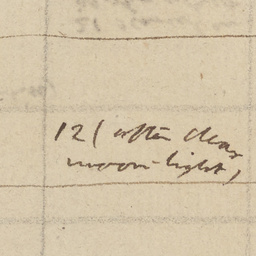 12 (often clear
moon-light)